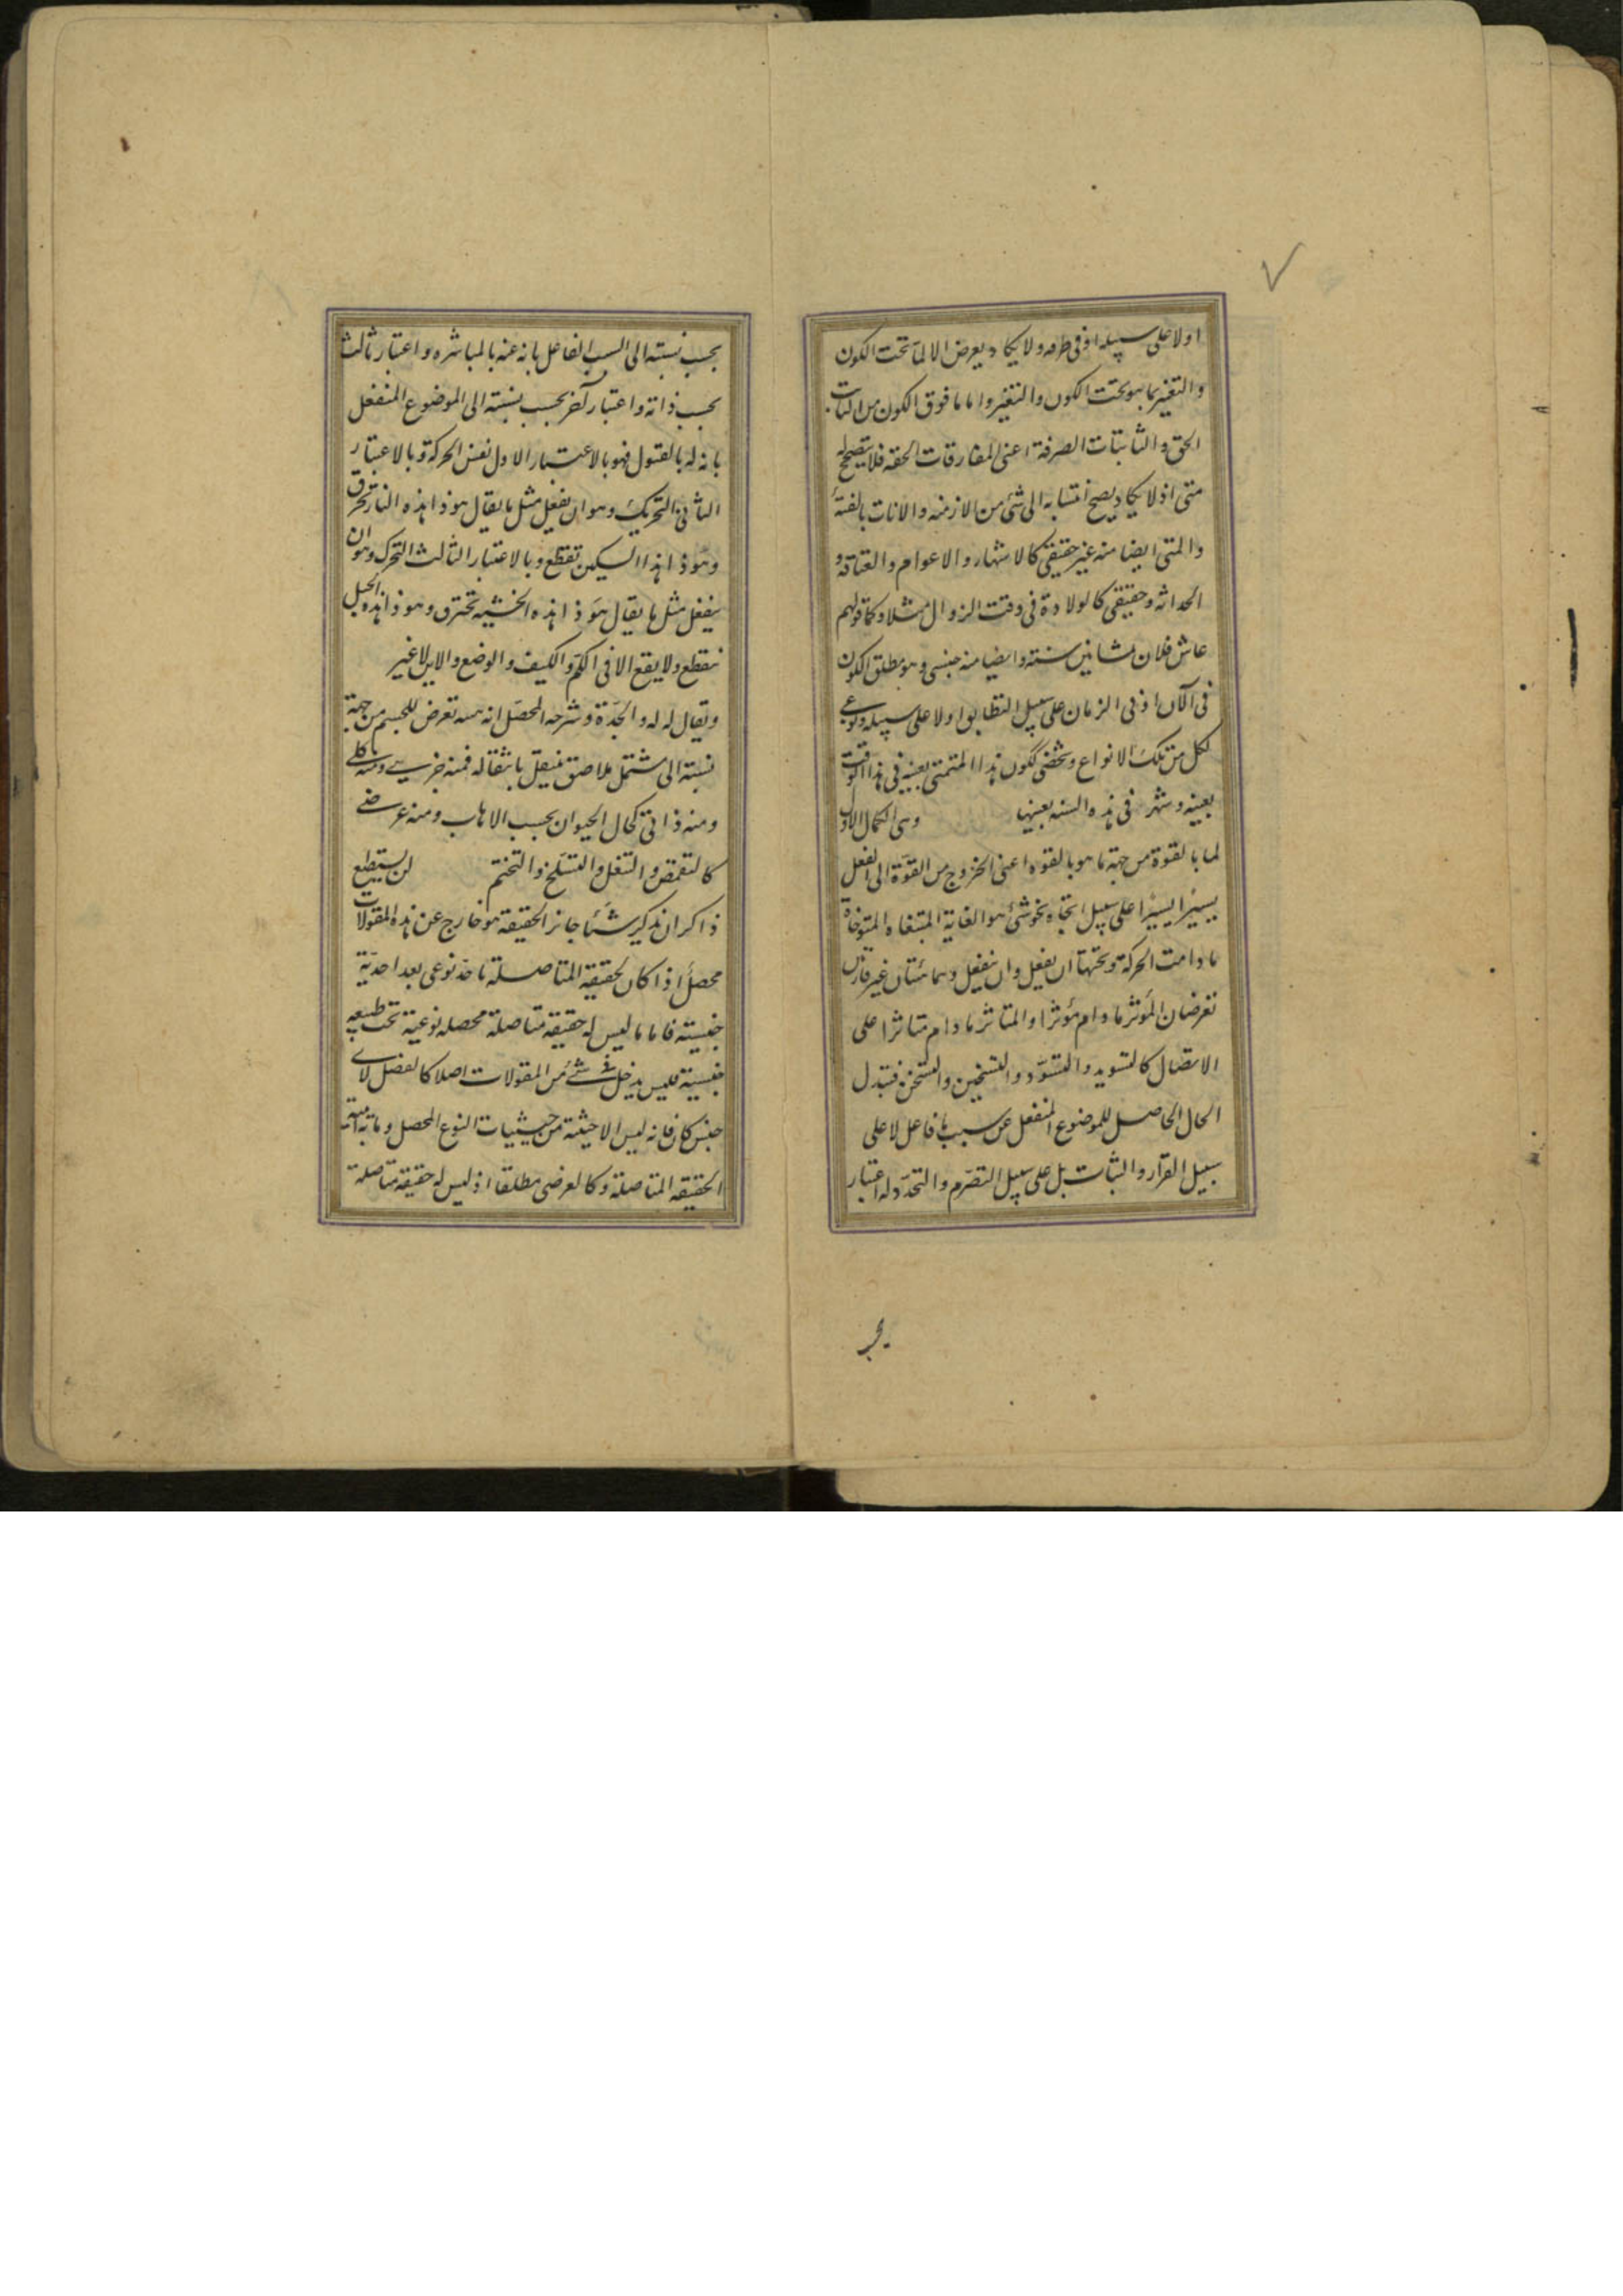 اولا على سبيله او فى طرفه ولا يكاد يعرض الا لما تحت الكون
والتغير بما هو تحت الكون والتغير واما ما فوق الكون من الثابت
الحق والثابتات الصرفة اعنى المفارقات الحقه فلا يتصحح له
متى اذ لا يكاد يصح انتسابه الى شئ من الازمنه والانات بالفيئة
والمتى ايضا منه غير حقيقى كالاشهار والاعوام والعتاقة و
الحداثه وحقيقى كالولادة فى وقت الزوال مثلا وكما قولهم
عاش فلان ثمانين سنته وايضا منه جنسى وهو مطلق الكون
فى الآن او فى الزمان على سبيل التطابق اولا على سبيله ونوعى
لكل من تلك الانواع وشخصى ككون هذا المتمتى بعينه فى هذا الوقت
بعينه وشهر فى هذه السنه بعينها وهى الكمال الاول
لما بالقوة من جهة ما هو بالقوه اعنى الخروج من القوة الى الفعل
يسيرا يسيرا على سبيل اتجاه نحو شئ هو الغاية المبتغاه المتوخاة
ما دامت الحركة وتحتها ان يفعل وان ينفعل وهما هيئتان غير قارتين
تعرضان المؤثر ما دام مؤثرا والمتاثر ما دام متاثرا على
الاتصال كالتسويد والتسود والتسخين والتسخن فتبدل
الحال الحاصل للموضوع المنفعل عن سبب ما فاعل لا على
سبيل القرار والثبات بل على سبيل التصرم والتجدد له اعتبار
بحسب
بحسب نسبته الى السبب الفاعل بانه عنه بالمباشره واعتبار ثالث
بحسب ذاته واعتبار آخر بحسب نسبته الى الموضوع المنفعل
بانه له بالقبول فهو بالاعتبار الاول نفس الحركة وبالاعتبار
الثانى التحريك وهو ان يفعل مثل ما يقال هو ذا هذه النار تحرق
وهو ذا هذا السكين تقطع وبالاعتبار الثالث التحرك وهو ان
ينفعل مثل ما يقال هو ذا هذه الخشبه تحترق وهو ذا هذه الحبل
ينقطع ولا يقع الا فى الكم والكيف والوضع والاين لا غير
ويقال له له والجدة وشرحه المحصل انه هيئة تعرض للجسم من جهة
نسبته الى مشتمل ملاصق منتقل بانتقاله فمنه جزئى ومنه كلى
ومنه ذاتى كحال الحيوان بحسب الاهاب ومنه عرضى
كالتقمص والتنعل والتسلح والتختم لن يستطيع
ذاكر ان يذكر شيئا جائز الحقيقة هو خارج عن هذه المقولات
محصل اذا كان لحقيقة المتاصلة ما حد نوعى بعد احدية
جنسية فاما ما ليس له حقيقة متاصلة محصله نوعية تحت طبيعه
جنسية فليس يدخل تحت شئ من المقولات اصلا كالفصل لاى
جنس كان فانه ليس الا حيثية من حيثيات النوع المحصل وما به تمامية
الحقيقه المتاصلة وكالعرضى مطلقا اذ ليس له حقيقة متاصلة